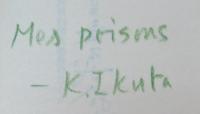 Mes prisms
- K. Ikuta